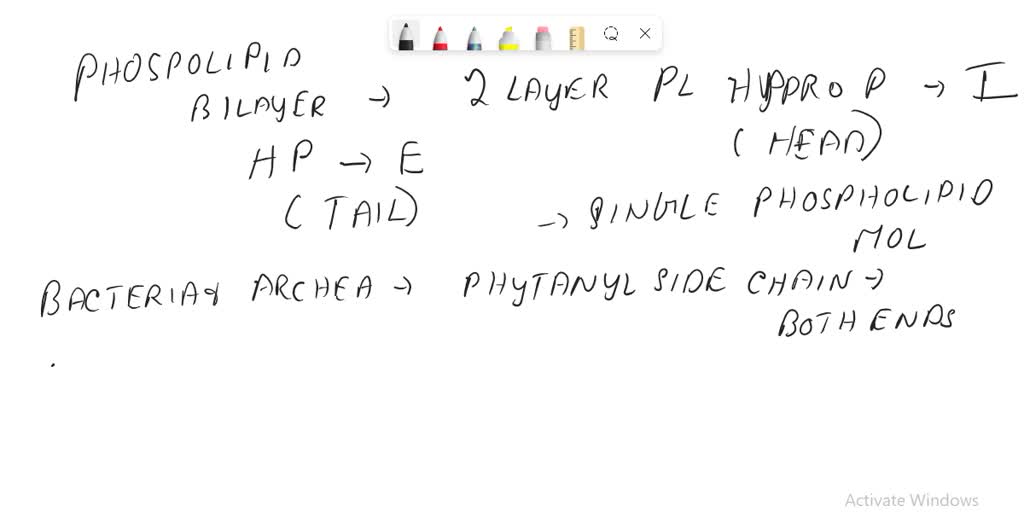 PHOSPOLIPID
BILAYER → 2 LAYER PL HYDRO P → I
(HEAD)
HP → E
(TAIL)
→ SINGLE PHOSPHOLIPID
MOL
BACTERIA & ARCHEA → PHYTANYL SIDE CHAIN →
BOTH ENDS
Activate Windows